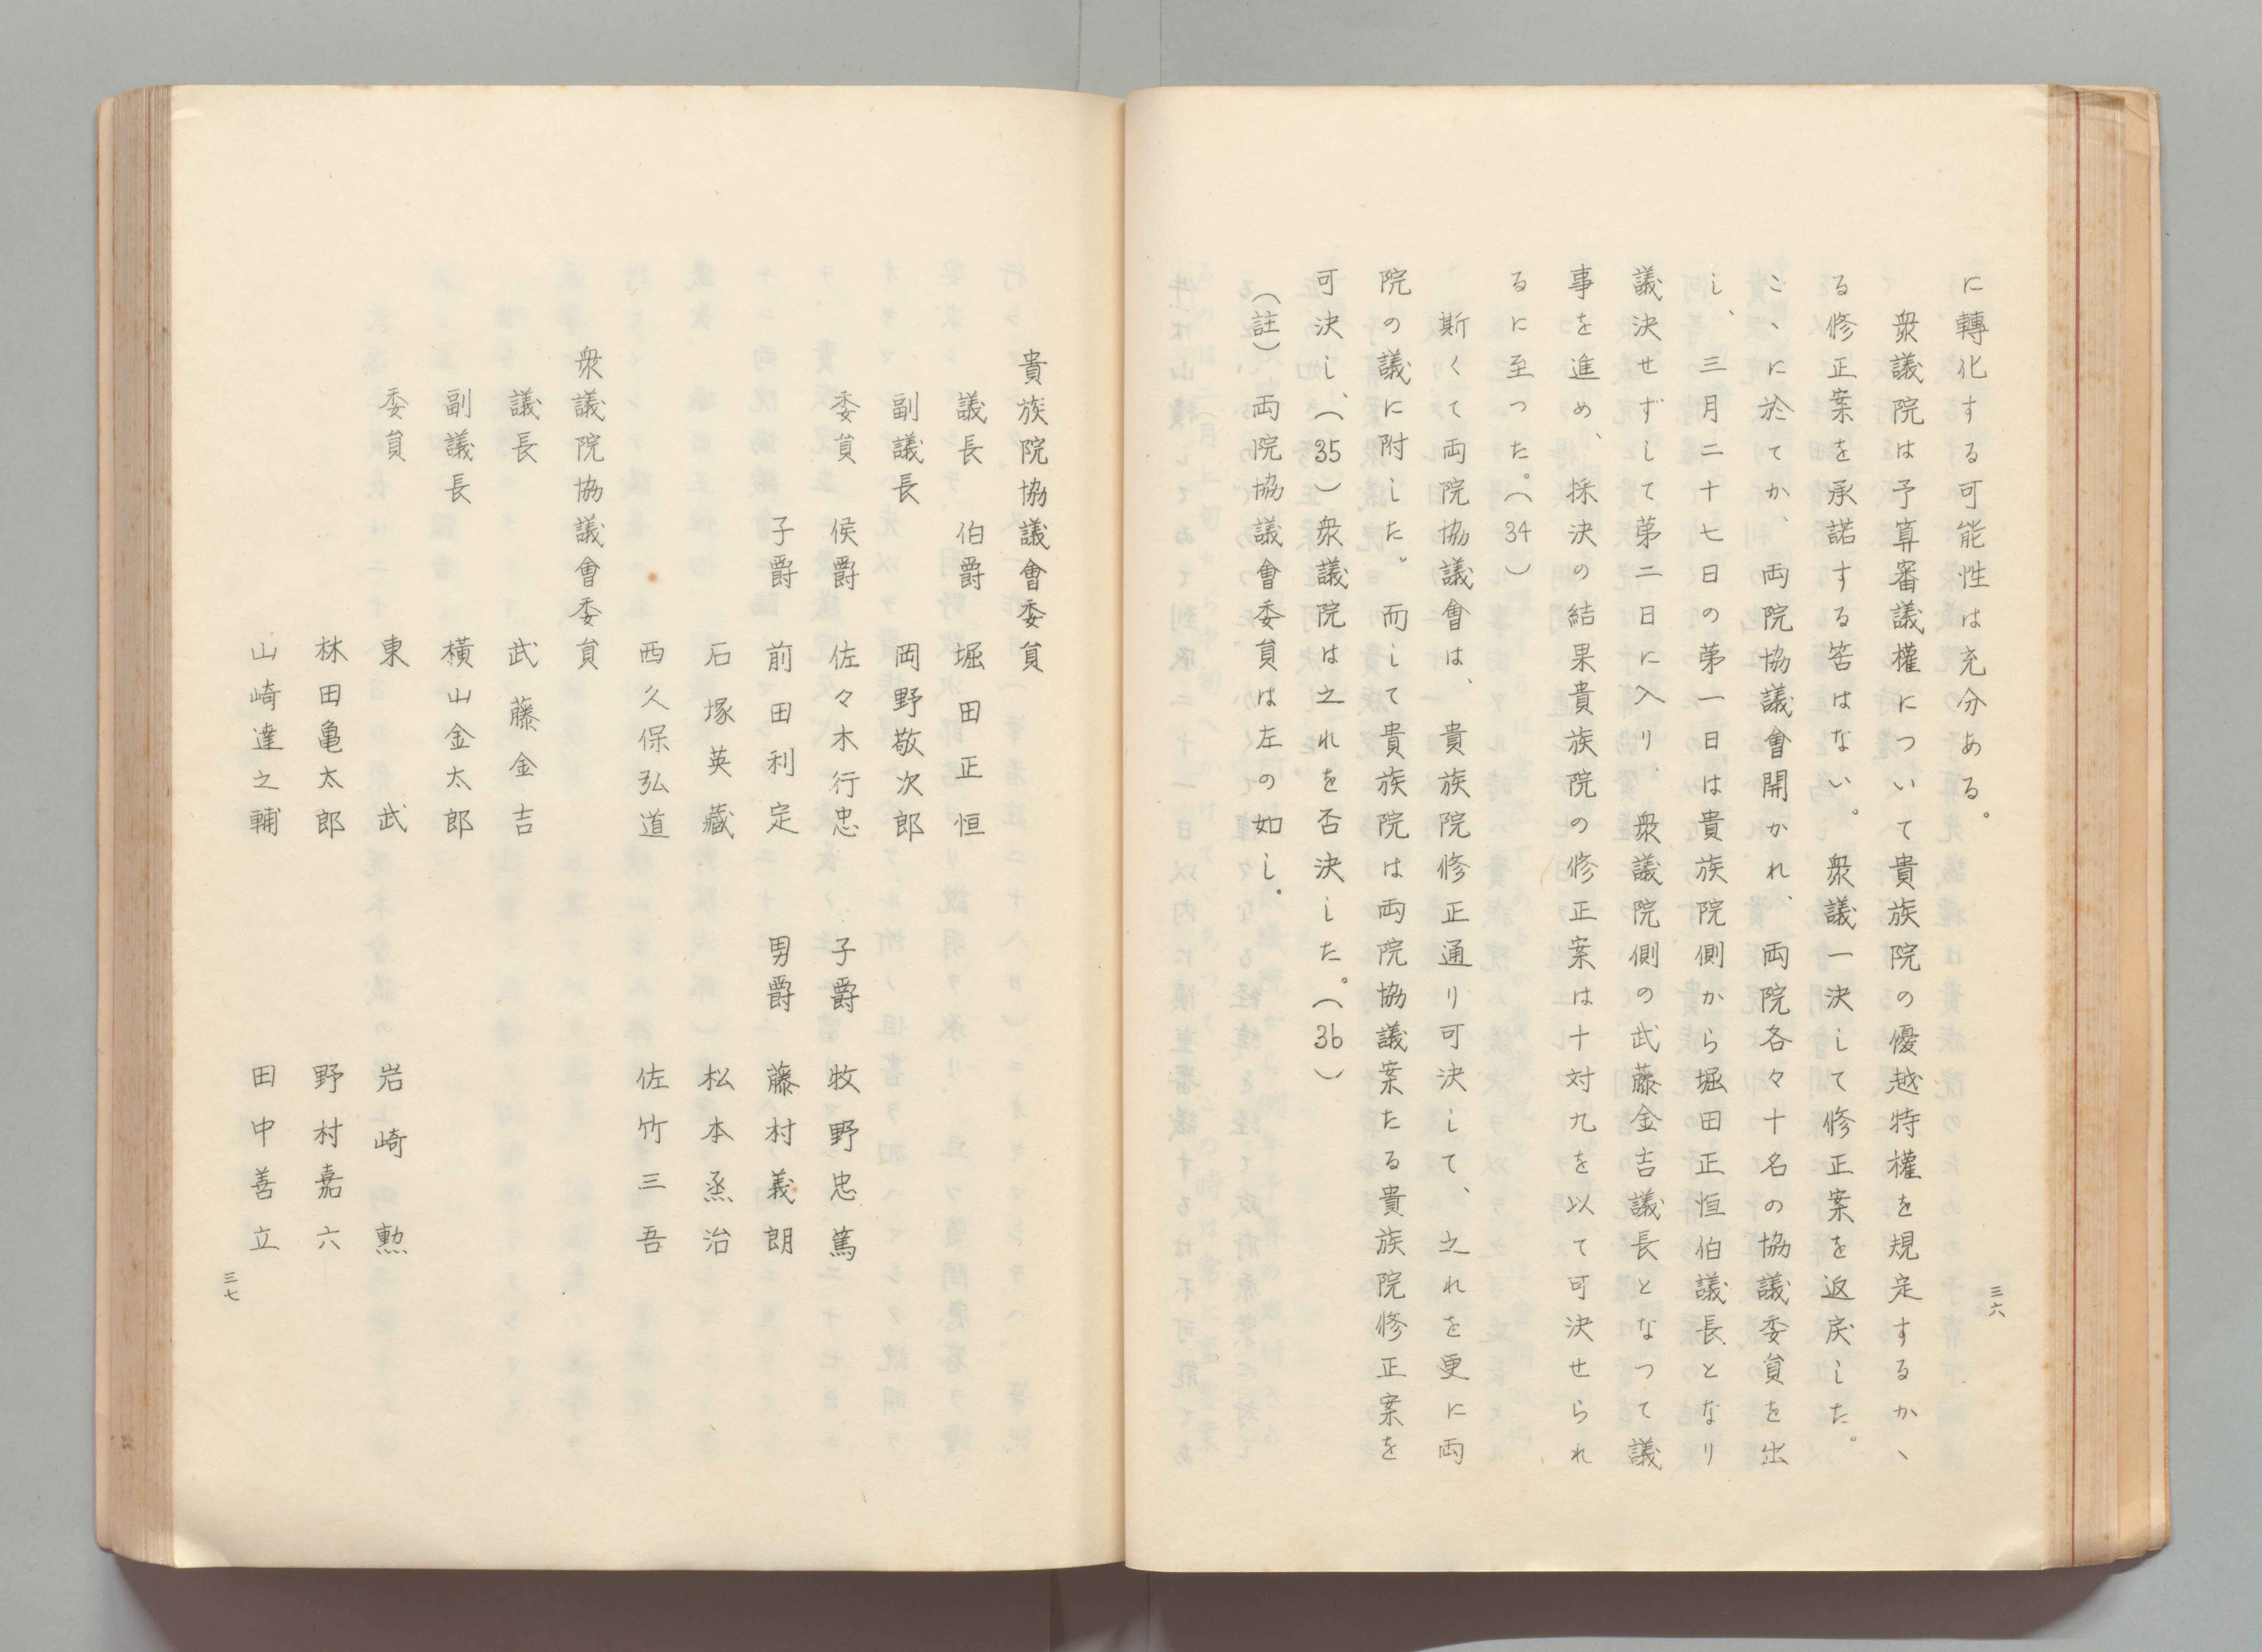 に轉化する可能性は充分ある。
衆議院は予算審議權について貴族院の優越特權を規定するか、
る修正案を承諾する筈はない。衆議一決して修正案を返戻した。
こゝに於てか、両院協議會開かれ、両院各々十名の協議委員を出
し、三月二十七日の第一日は貴族院側から堀田正恒伯議長となり
議決せずして第二日に入り、衆議院側の武藤金吉議長となつて議
事を進め、採決の結果貴族院の修正案は十対九を以て可決せられ
るに至つた。(34)
斯くて両院協議會は、貴族院修正通り可決して、之れを更に両
院の議に附した。而して貴族院は両院協議案たる貴族院修正案を
可決し、(35)衆議院は之れを否決した。(36)
(註)両院協議會委員は左の如し。
三六
貴族院協議會委員
議長 伯爵 堀田正恒
副議長 岡野敬次郎
委員 侯爵 佐々木行忠 子爵 牧野忠篤
子爵 前田利定 男爵 藤村義朗
石塚英藏 松本烝治
西久保弘道 佐竹三吾
衆議院協議會委員
議長 武藤金吉
副議長 横山金太郎
委員 東武 岩崎勲
林田亀太郎 野村嘉六
山崎達之輔 田中善立
三七